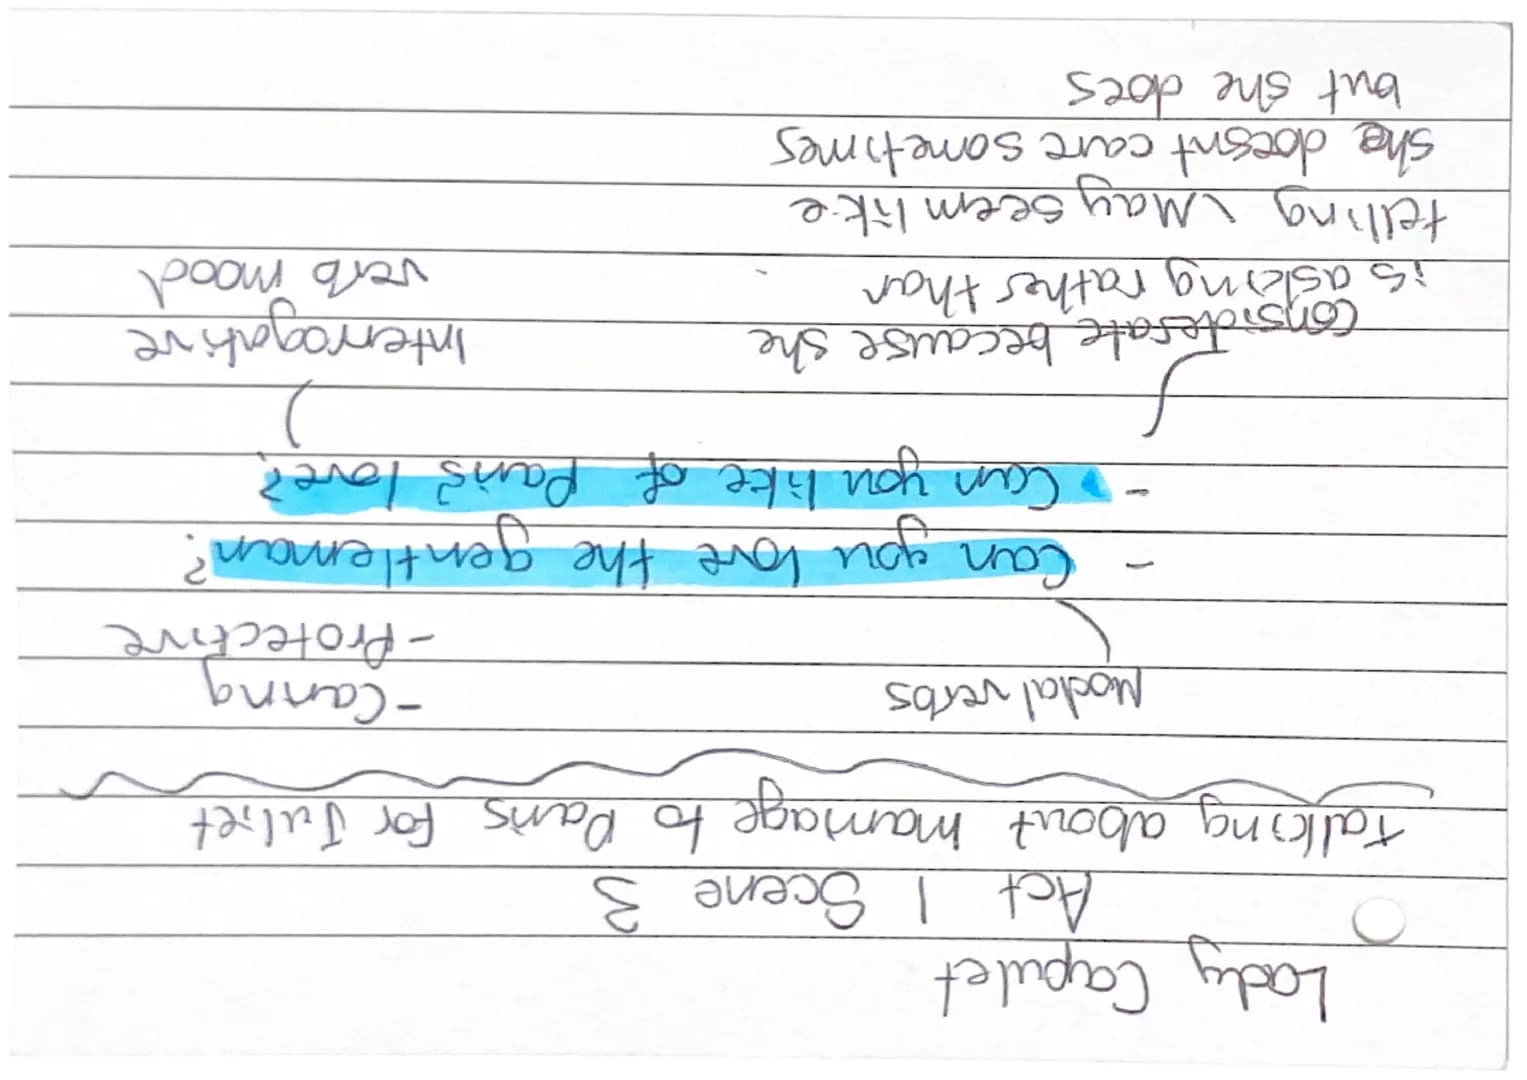 Lady Capulet
Act 1 Scene 3
talking about marriage to Paris for Juliet
Modal verbs
- Caring
- Protective
- Can you love the gentleman?
- Can you like of Paris' love?
Considerate because she
is asking rather than
telling \ May seem like
she doesnt care sometimes
but she does
Interrogative
verb mood